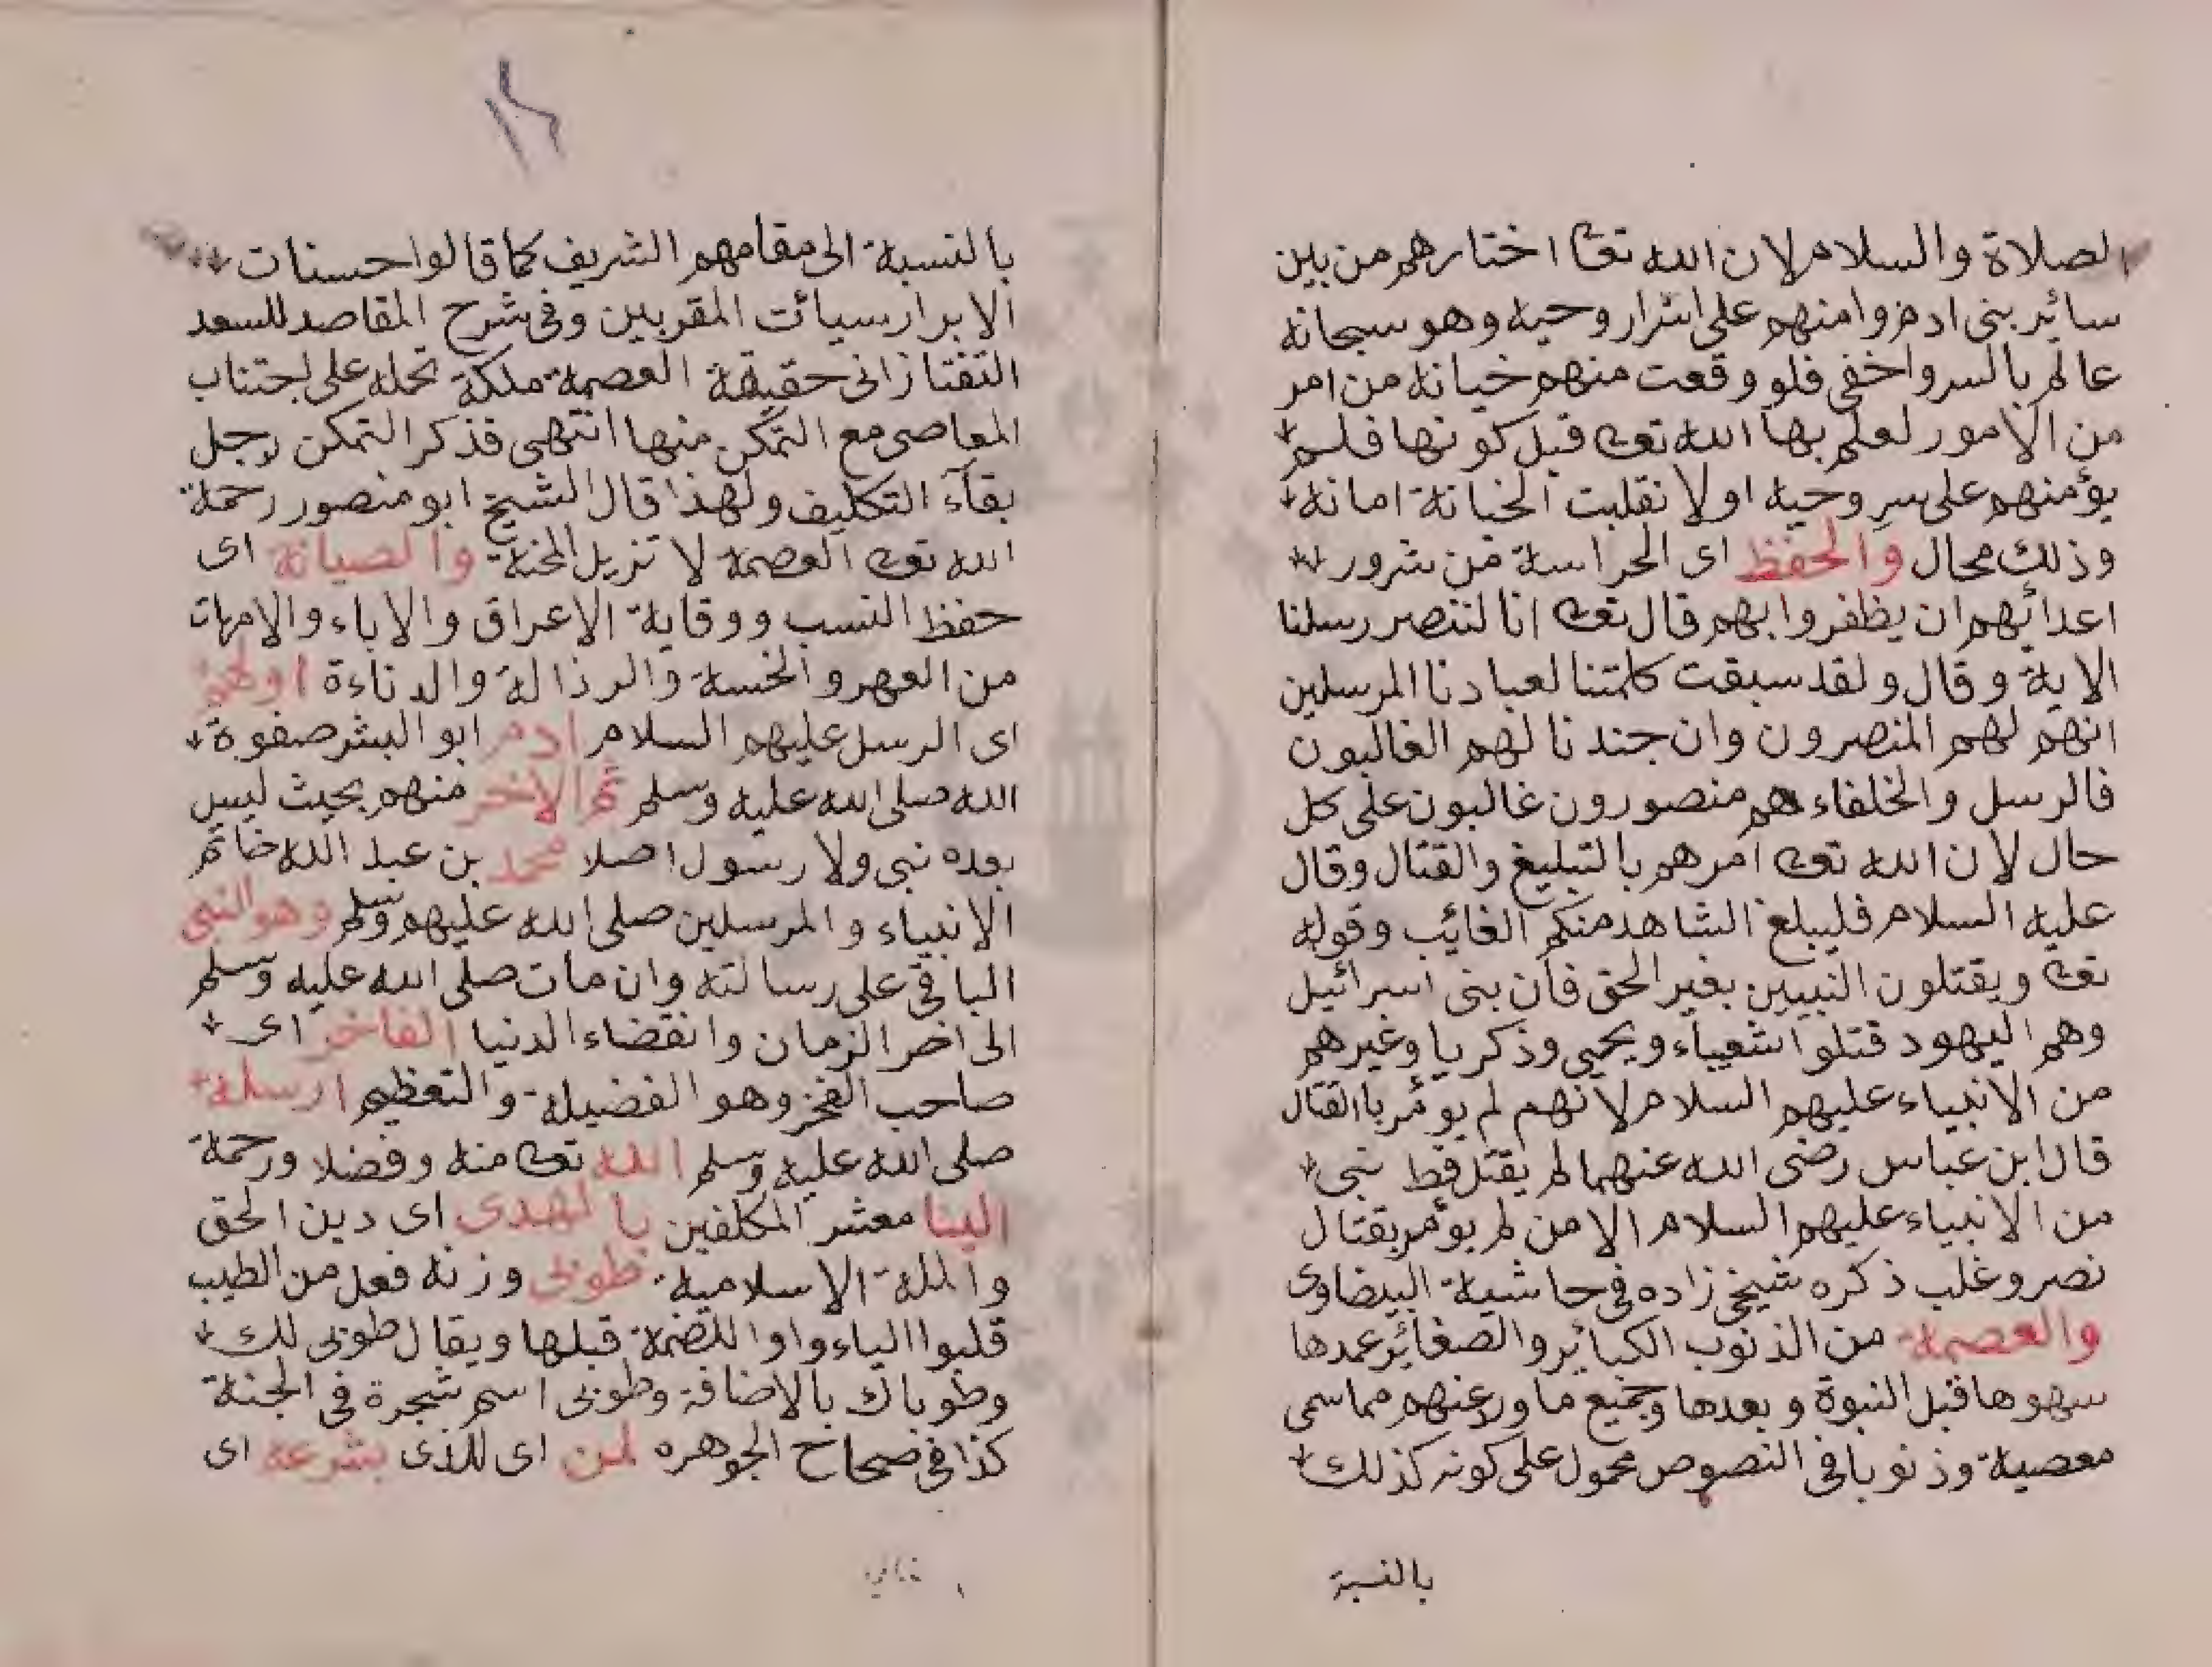 الصلاة والسلام لان الله تعا اختارهم من بين
سائر بنى ادم وامنهم على اسرار وحيه وهو سبحانه
عالم بالسر واخفى فلو وقعت منهم خيانة من امر
من الامور لعلم بها الله تعا قبل كونها فلم
يؤمنهم على سر وحيه او لانقلبت الخيانة امانة
وذلك محال والحفظ اى الحراسة من شرور
اعدائهم ان يظفروا بهم قال تعا انا لننصر رسلنا
الاية وقال ولقد سبقت كلمتنا لعبادنا المرسلين
انهم لهم المنصرون وان جندنا لهم الغالبون
فالرسل والخلفاء هم منصورون غالبون على كل
حال لان الله تعا امرهم بالتبليغ والقتال وقال
عليه السلام فليبلغ الشاهد منكم الغايب وقوله
تعا ويقتلون النبيين بغير الحق فان بنى اسرائيل
وهم اليهود قتلوا اشعياء ويحيى وذكريا وغيرهم
من الانبياء عليهم السلام لانهم لم يومر باالقتال
قال ابن عباس رضى الله عنهما لم يقتل قط نبى
من الانبياء عليهم السلام الا من لم يومر بقتال
نصر وغلب ذكره شيخى زاده فى حاشية البيضاوى
والعصمة من الذنوب الكبائر والصغائر عمدها
سهوها قبل النبوة وبعدها وجميع ما ورد عنهم مماسمى
معصية وذنوبا فى النصوص محمول على كونه كذلك
بالنسبة
بالنسبة الى مقامهم الشريف كما قالوا حسنات
الابرار سيائت المقربين وفى شرح المقاصد للسعد
التفتازانى حقيقة العصمة ملكة تحمله على اجتناب
المعاصى مع التمكن منها انتهى فذكر التمكن لاجل
بقآء التكليف ولهذا قال الشيخ ابو منصور رحمة
الله تعا العصمة لا تزيل المحنة والصيانة اى
حفظ النسب ووقاية الاعراق والاباء والامهات
من العهر والخسة والرذالة والدناءة اولهم
اى الرسل عليهم السلام ادم ابو البشر صفوة
الله صلى الله عليه وسلم ثم الاخر منهم بحيث ليس
بعده نبى ولا رسول اصلا محمد بن عبد الله خاتم
الانبياء والمرسلين صلى الله عليهم وسلم وهو النبى
الباقى على رسالته وان مات صلى الله عليه وسلم
الى اخر الزمان وانقضاء الدنيا الفاخر اى
صاحب الفخر وهو الفضيلة والتعظيم ارسله
صلى الله عليه وسلم الله تعا منه وفضلا ورحمة
الينا معشر المكلفين بالهدى اى دين الحق
والملة الاسلامية طوبى وزنه فعل من الطيب
قلبوا الياء واوا للضمة قبلها ويقال طوبى لك
وطوباك بالاضافة وطوبى اسم شجرة فى الجنة
كذا فى صحاح الجوهره لمن اى للذى بشرعه اى